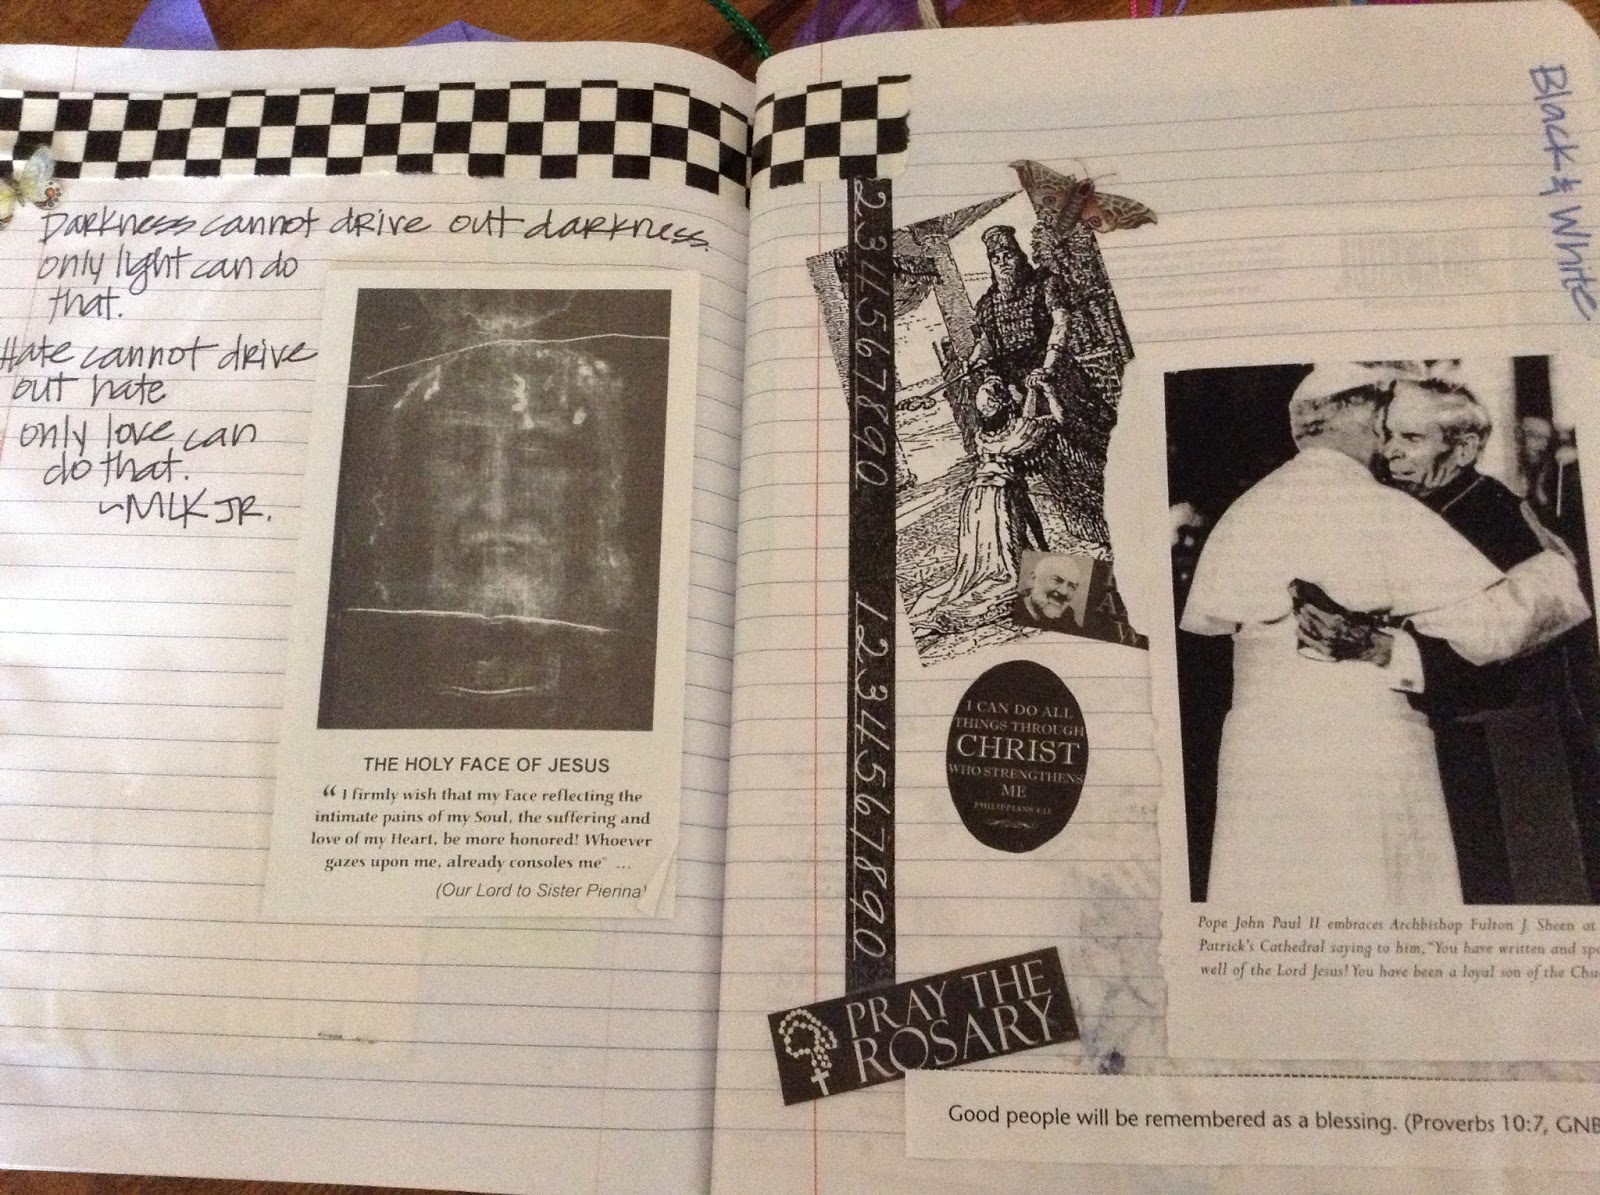 Darkness cannot drive out darkness.
only light can do
that.
Hate cannot drive
out hate
only love can
do that.
~MLK JR.
THE HOLY FACE OF JESUS
“ I firmly wish that my Face reflecting the
intimate pains of my Soul, the suffering and
love of my Heart, be more honored! Whoever
gazes upon me, already consoles me" ...
(Our Lord to Sister Pierina)
Black & White
234567890 1234567890
I CAN DO ALL
THINGS THROUGH
CHRIST
WHO STRENGTHENS
ME
PHILIPPIANS 4:13
PRAY THE
ROSARY
Pope John Paul II embraces Archbishop Fulton J. Sheen at
Patrick's Cathedral saying to him, "You have written and spo
well of the Lord Jesus! You have been a loyal son of the Chu
Good people will be remembered as a blessing. (Proverbs 10:7, GNB